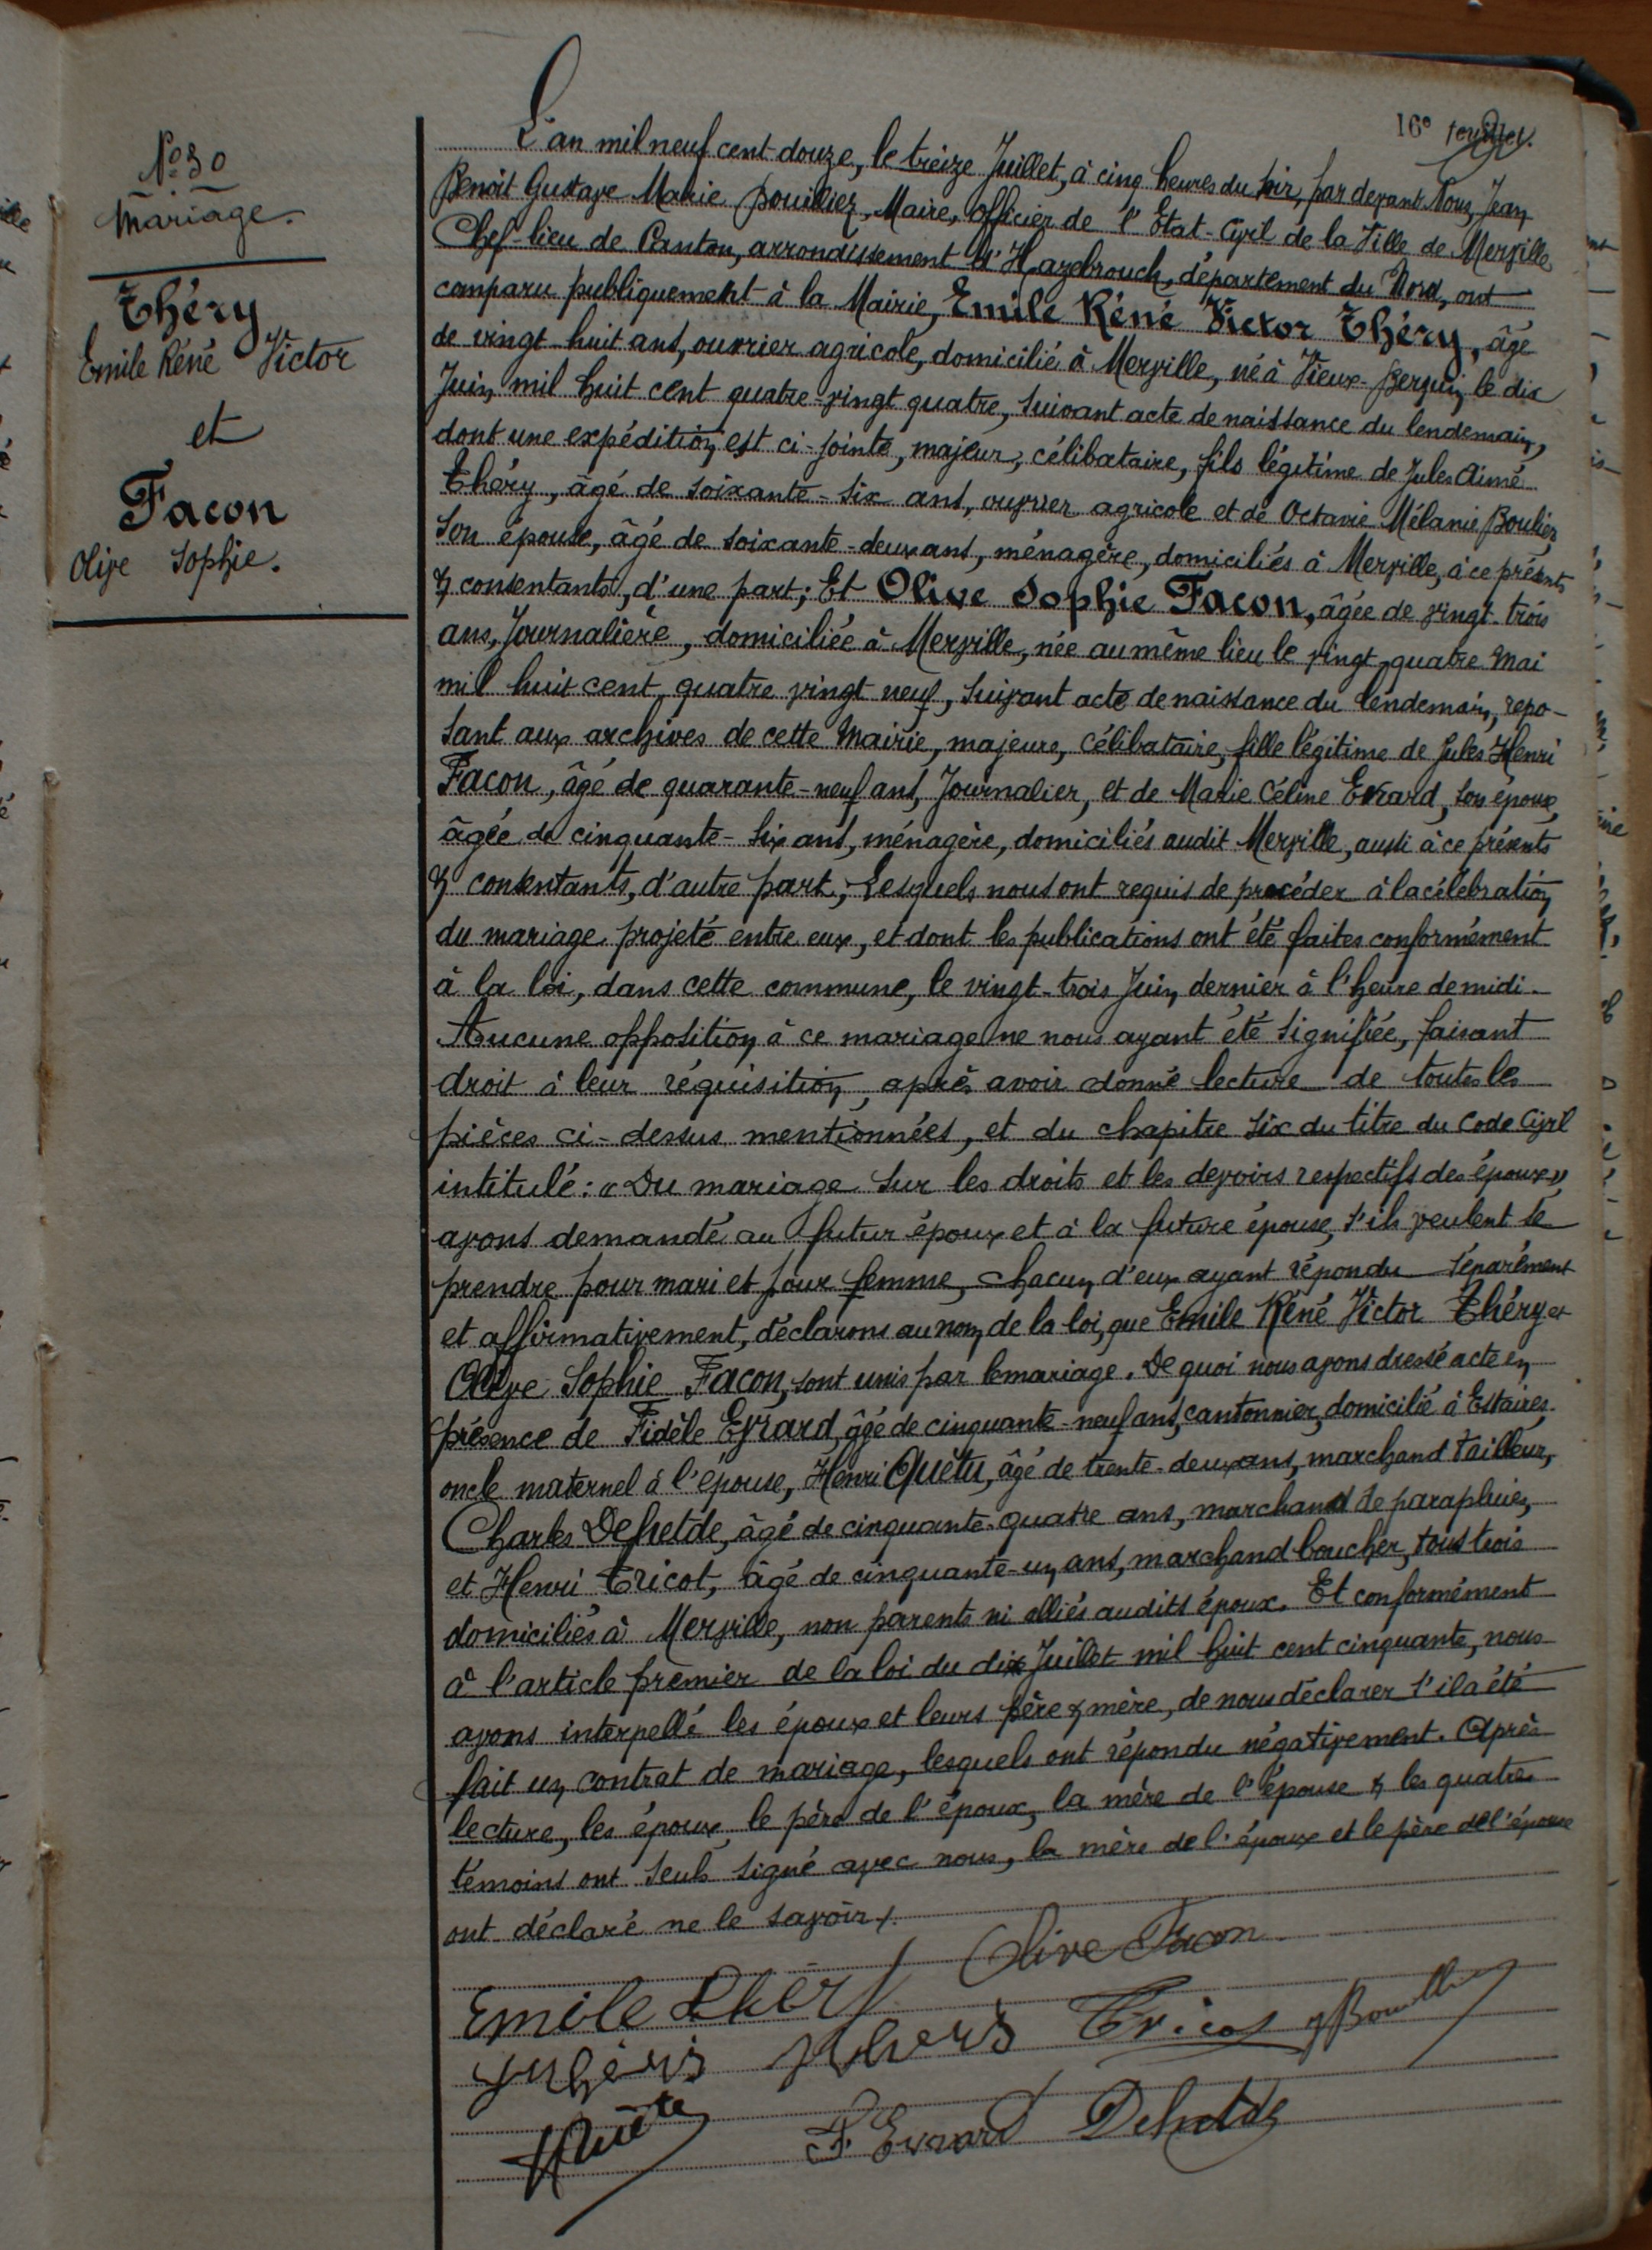 16e feuillet.
N° 30
Mariage.
Théry
Emile Réné Victor
et
Facon
Olive Sophie.
L'an mil neuf cent douze, le treize Juillet, à cinq heures du soir, par devant Nous, Jean
Benoît Gustave Marie Pouillier, Maire, officier de l'Etat-Civil de la Ville de Merville
Chef-lieu de Canton, arrondissement d'Hazebrouck, département du Nord, ont
comparu publiquement à la Mairie, Emile Réné Victor Théry, âgé
de vingt-huit ans, ouvrier agricole, domicilié à Merville, né à Vieux-Berquin, le dix
Juin mil huit cent quatre-vingt quatre, suivant acte de naissance du lendemain,
dont une expédition est ci-jointe, majeur, célibataire, fils légitime de Jules Aimé
Théry, âgé de soixante-six ans, ouvrier agricole et de Octavie Mélanie Boulier
son épouse, âgé de soixante-deux ans, ménagère, domiciliés à Merville, à ce présents
& consentants, d'une part; Et Olive Sophie Facon, âgée de vingt-trois
ans, Journalière, domiciliée à Merville, née au même lieu le vingt-quatre Mai
mil huit cent quatre vingt neuf, suivant acte de naissance du lendemain, repo-
sant aux archives de cette Mairie, majeure, célibataire, fille légitime de Jules Henri
Facon, âgé de quarante-neuf ans, Journalier, et de Marie Céline Evrard, son épouse,
âgée de cinquante-six ans, ménagère, domiciliés audit Merville, aussi à ce présents
& consentants, d'autre part; Lesquels nous ont requis de procéder à la célébration
du mariage projeté entre eux, et dont les publications ont été faites conformément
à la loi, dans cette commune, le vingt-trois Juin dernier à l'heure de midi.
Aucune opposition à ce mariage ne nous ayant été signifiée, faisant
droit à leur réquisition, après avoir donné lecture de toutes les
pièces ci-dessus mentionnées, et du chapitre six du titre du Code Civil
intitulé: « Du mariage sur les droits et les devoirs respectifs des époux »
avons demandé au futur époux et à la future épouse, s'ils veulent se
prendre pour mari et pour femme, chacun d'eux ayant répondu séparément
et affirmativement, déclarons au nom de la loi, que Emile Réné Victor Théry et
Olive Sophie Facon, sont unis par le mariage. De quoi nous avons dressé acte en
présence de Fidèle Evrard, âgé de cinquante-neuf ans, cantonnier, domicilié à Estaires,
oncle maternel à l'épouse, Henri Quétu, âgé de trente-deux ans, marchand tailleur,
Charles Dehetde, âgé de cinquante-quatre ans, marchand de parapluies,
et Henri Tricot, âgé de cinquante-un ans, marchand boucher, tous trois
domiciliés à Merville, non parents ni alliés audits époux. Et conformément
à l'article premier de la loi du dix Juillet mil huit cent cinquante, nous
avons interpellé les époux et leurs père & mère, de nous déclarer s'il a été
fait un contrat de mariage, lesquels ont répondu négativement. Après
lecture, les époux, le père de l'époux, la mère de l'épouse & les quatres
témoins ont seuls signé avec nous, la mère de l'époux et le père de l'épouse
ont déclaré ne le savoir.
Emile Théry Olive Facon
Tricot
F. Evrard Dehetde